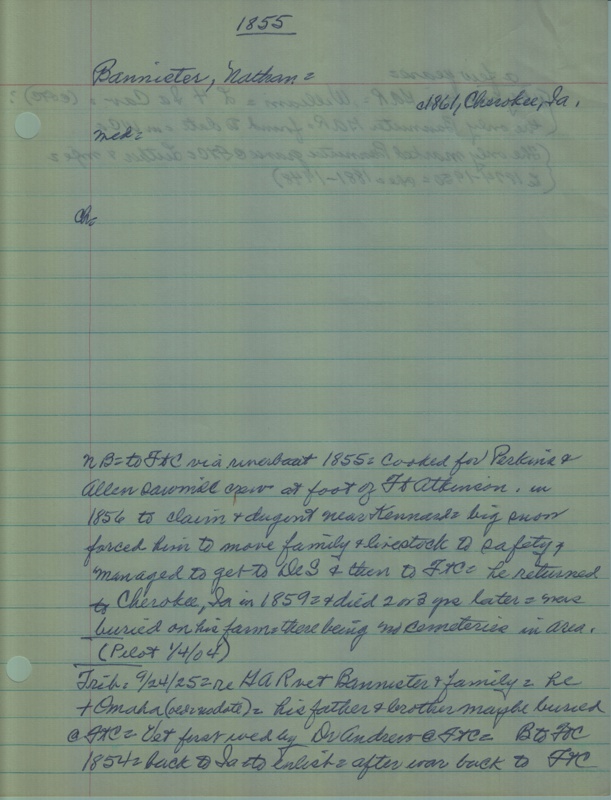 1855
Bannister, Nathan =
c1861, Cherokee, Ia.
med=
ch=
NB= to FtC via riverboat 1855= cooked for Perkins &
Allen sawmill crew at foot of Ft Atkinson. in
1856 to claim & dugout near Kennard= big snow
forced him to move family & livestock to safety &
managed to get to DeS & then to FtC= he returned
to Cherokee, Ia in 1859= & died 2 or 3 yrs later= was
buried on his farm= there being no cemeteries in area.
(Pilot 1/4/04)
Trib: 9/24/25= re GAR vet Bannister & family= he
+ Omaha = his father & brother maybe buried
@ FtC= Vet first wed by Dr Andrews @ FtC= B to FtC
1854= back to Ia to enlist= after war back to FtC